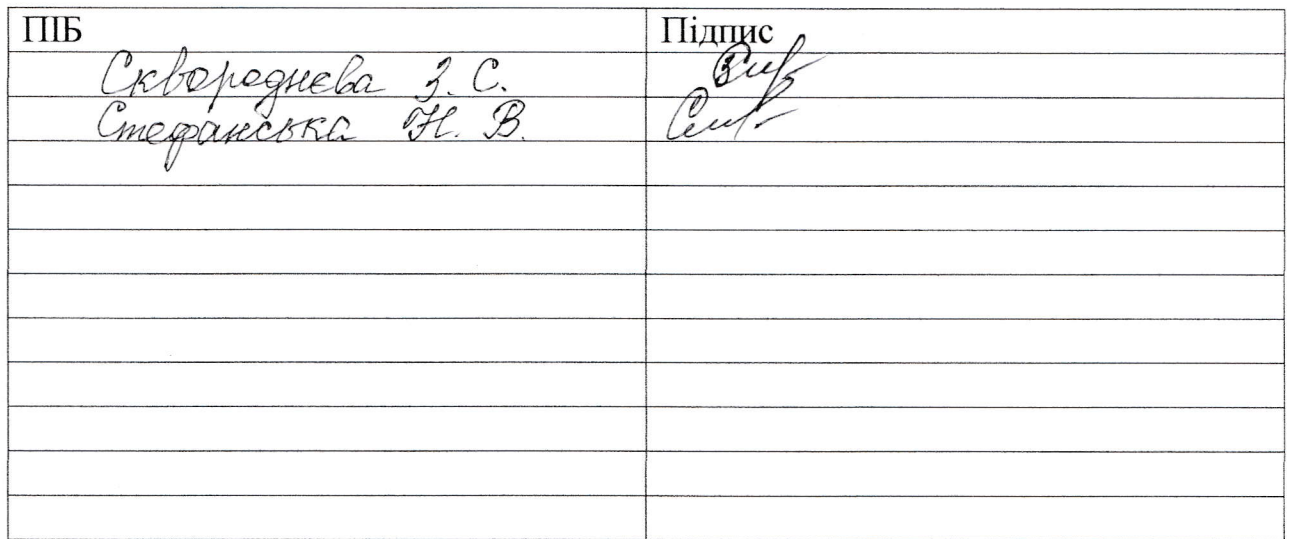 ПІБ Підпис
Сквороднєва З. С.
Стефанська Н. В.